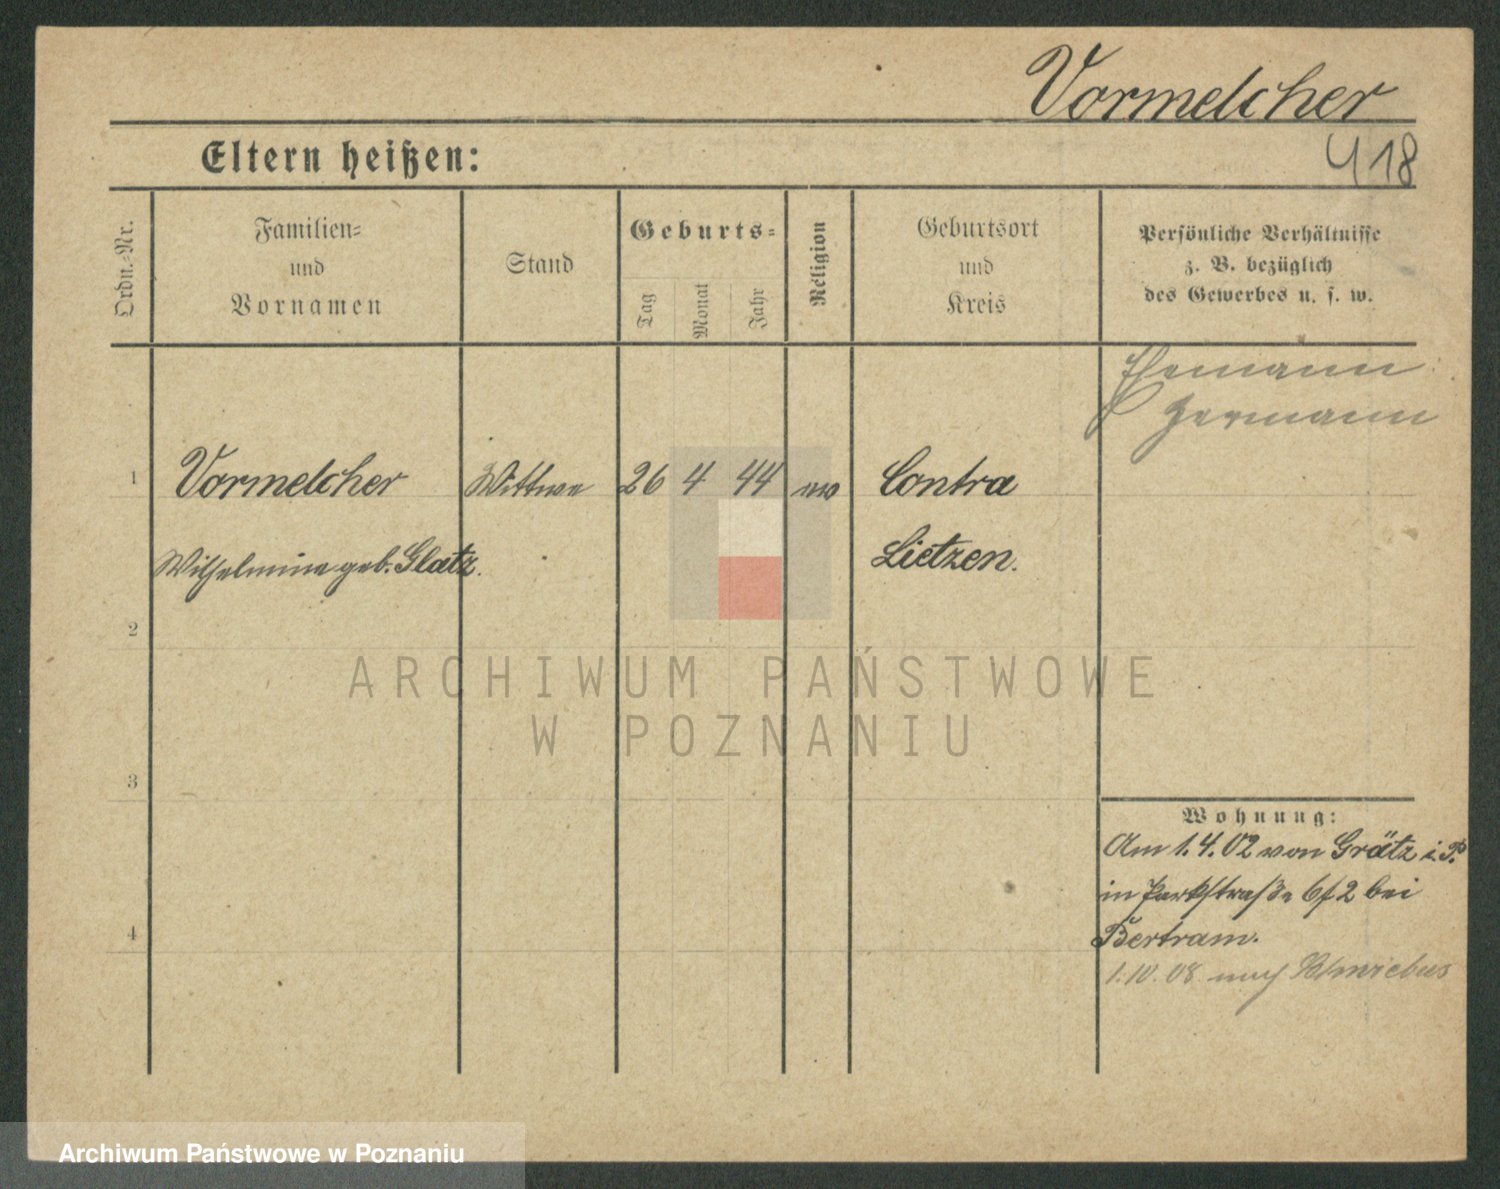 Vormelcher
418
Eltern heißen:
Ordn.-Nr.
Familien-
und
Vornamen
Stand
Geburts-
Tag
Monat
Jahr
Religion
Geburtsort
und
Kreis
Persönliche Verhältnisse
z. B. bezüglich
des Gewerbes u. s. w.
Ehemann
Hermann
1
Vormelcher
Wittwe
26 4 44
ev
Contra
Wilhelmine geb. Glatz.
Lietzen.
2
ARCHIWUM PAŃSTWOWE
W POZNANIU
3
Wohnung:
Am 1.4.02 von Grätz i. P.
in Parkstraße 6/2 bei
4
Bertram.
1.10.08 nach
Archiwum Państwowe w Poznaniu